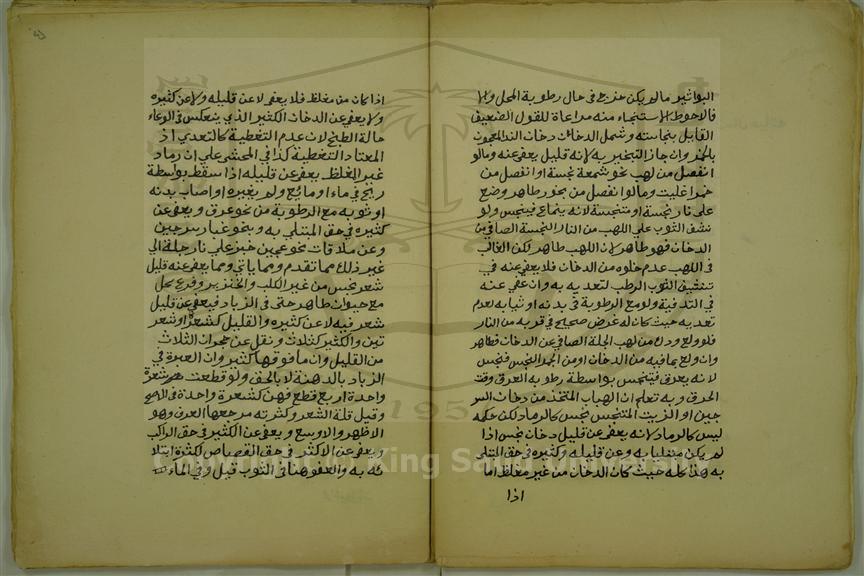 البواثير مالم يكن خرج في حال رطوبة المحل والا
فالاحوط الاستنجاء منه مراعاة للقول الضعيف
القايل بنجاسته وشمل الدخان دخان الند المعجون
بالخمر وان جاز التبخير به لانه قليل يعفى عنه ومالو
انفصل من لهب نحو شمعة نجسة او انفصل من
خمر اغليت ومالو انفصل من بخور طاهر وضع
على نار نجسة او متنجسة لانه ينماع فيتنجس ولو
نشف الثوب على اللهب من النار النجسة الصافي من
الدخان فهو طاهر لان اللهب طاهر لكن الغالب
في اللهب عدم خلوه من الدخان فلا يعفى عنه في
تنشيف الثوب الرطب لتعديه به وان عفي عنه
في التدفية ولو مع الرطوبة في بدنه او ثيابه لعدم
تعديه حيث كان له غرض صحيح في قربه من النار
فلو ولع ودك من لهب الجلة الصافي عن الدخان فطاهر
وان ولع بما فيه من الدخان او من الجمر النجس فنجس
لانه يعرق فيتنجس بواسطة رطوبة العرق وقت
الحرق وبه تعلم ان الهباب المتخذ من دخان السر
جين او الزيت المتنجس نجس كالرماد لكن حكمه
ليس كالرماد لانه يعفى عن قليل دخان نجس اذا
لم يكن مبتليا به وعن قليله وكثيره في حق المبتلى
به هذا كله حيث كان الدخان من غير مغلظ اما
اذا
اذا كان من مغلظ فلا يعفى لا عن قليله ولا عن كثيره
ولا يعفى عن الدخان الكثير الذي ينعكس في الوعاء
حالة الطبخ لان عدم التغطية كالتعدي اذ
المعتاد التغطية كذا في المحشي على ان رماد
غير المغلظ يعفى عن قليله اذا سقط بواسطة
ريح في ماء او مايع ولم يغيره او اصاب بدنه
او ثوبه مع الرطوبة من نحو عرق ويعفى عن
كثيره في حق المبتلى به وبنحو غبار سرجين
وعن ملاقات نحو عجين خبز على نار جلة الى
غير ذلك مما تقدم ومما ياتي ومما يعفى عنه قليل
شعر نجس من غير الكلب والخنزير وفرع كل
مع حيوان طاهر حتى في الزباد فيعفى عن قليل
شعر فيه لا عن كثيره والقليل كشعرة او شعر
تين والكثير كثلاث ونقل عن حجر ان الثلاث
من القليل وان مافوقها كثير وان العبرة في
الزباد بالدهنة لا بالحق ولو قطعت شعرة
واحدة اربع قطع فهن كشعرة واحدة في الاصح
وقيل قلة الشعر وكثرته مرجعها العرف وهو
الاظهر والاوسع ويعفى عن الكثير في حق الراكب
ويعفى عن الاكثر في حق القصاص لكثرة ابتلا
ئه به والعفو هنا في الثوب قيل وفي الماء
Copyright © King Saud University
195